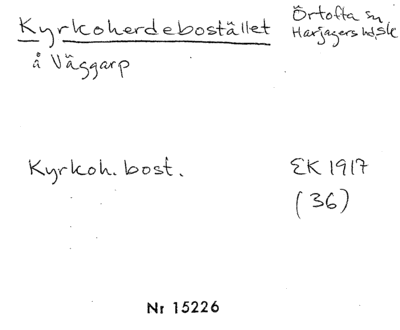 Kyrkoherdebostället
å Väggarp
Örtofta sn
Harjagers hd, Sk
Kyrkoh. bost.
EK 1917
(36)
Nr 15226